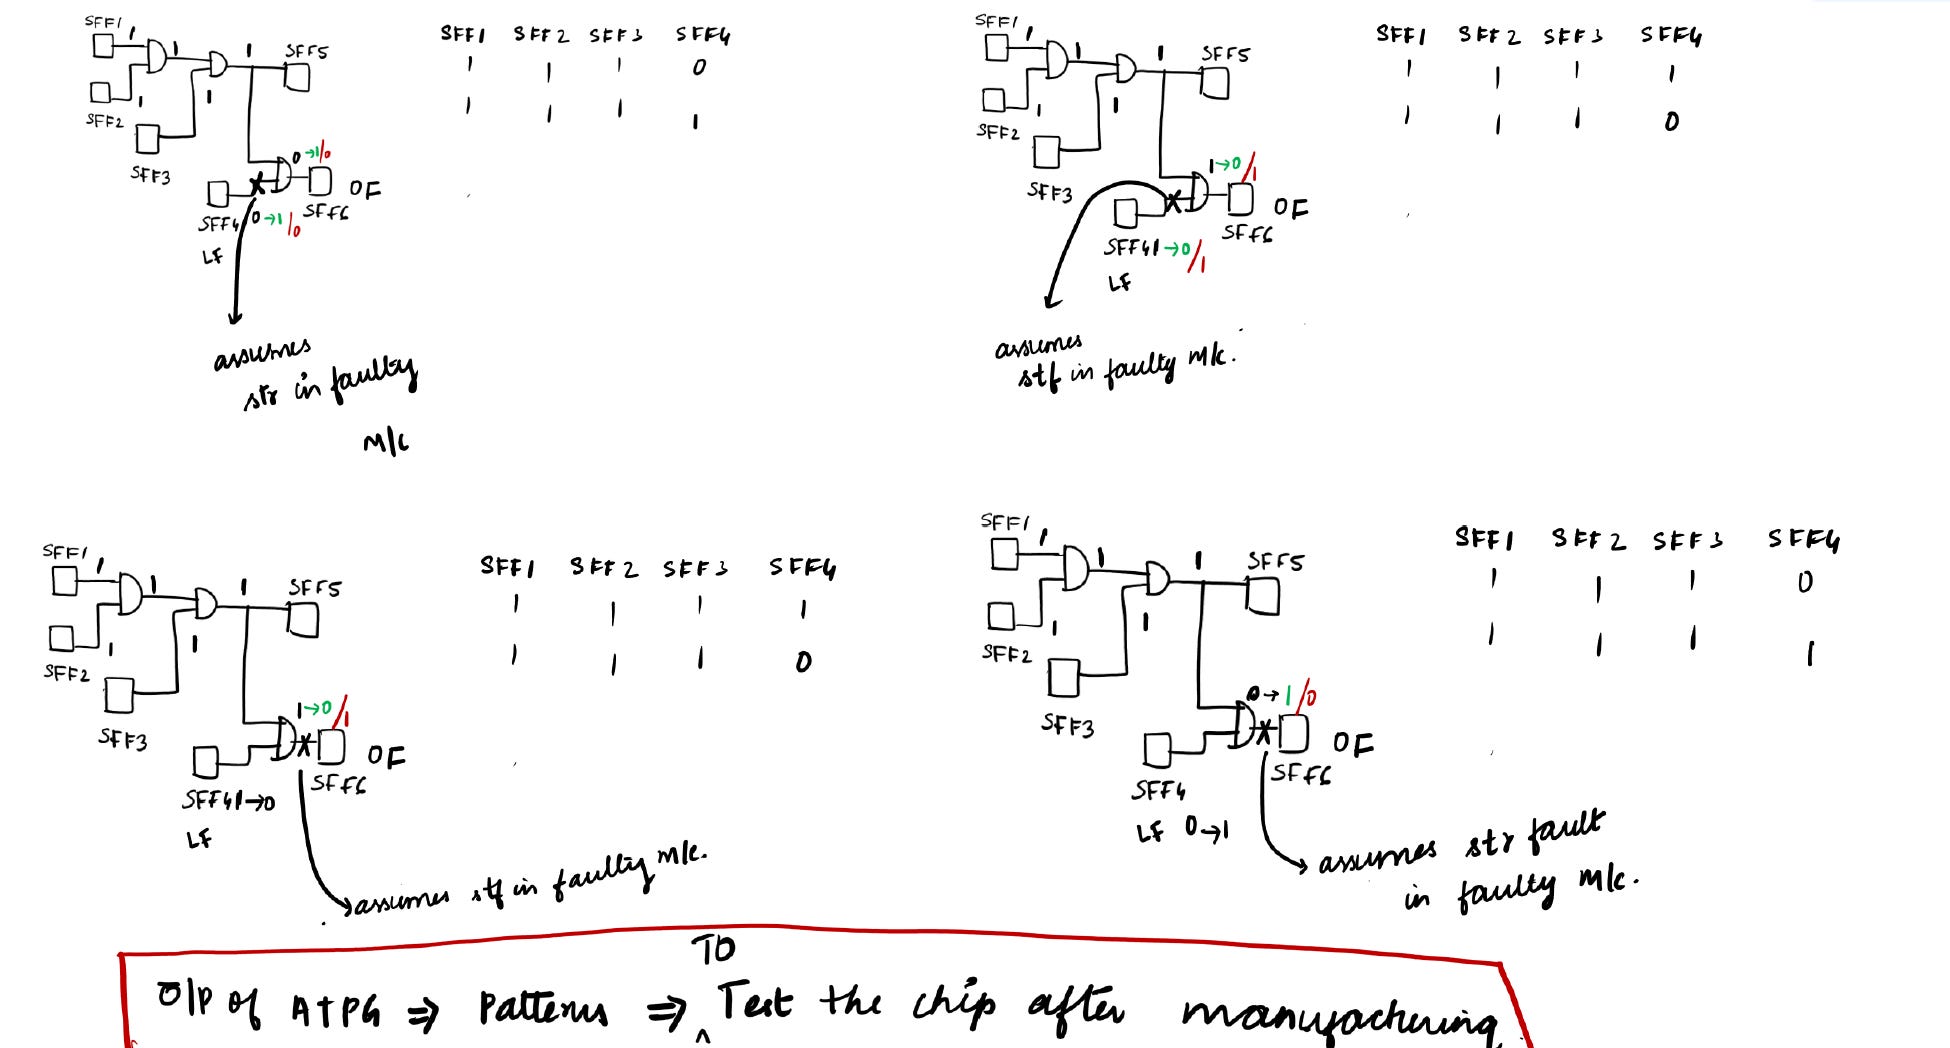 SFF1 1
1 1 SFF5
1 1
SFF2
SFF3
0→1/0
SFF4 0→1/0 SFF6 OF
LF
assumes
str in faulty
M/C
SFF1 SFF2 SFF3 SFF4
1 1 1 0
1 1 1 1
SFF1 1
1 1 SFF5
1 1
SFF2
SFF3
1→0/1
OF
SFF4 1→0/1 SFF6
LF
assumes
stf in faulty M/c.
SFF1 SFF2 SFF3 SFF4
1 1 1 1
1 1 1 0
SFF1 1
1 1 SFF5
1 1
SFF2
SFF3
1→0/1
OF
SFF6
SFF4 1→0
LF
assumes stf in faulty M/c.
SFF1 SFF2 SFF3 SFF4
1 1 1 1
1 1 1 0
SFF1 1
1 1 SFF5
1 1
SFF2
SFF3
0→1/0
OF
SFF4 SFF6
LF 0→1
assumes str fault
in faulty M/c.
SFF1 SFF2 SFF3 SFF4
1 1 1 0
1 1 1 1
TO
O/P of ATPG ⇒ Patterns ⇒ ^ Test the chip after manufacturing